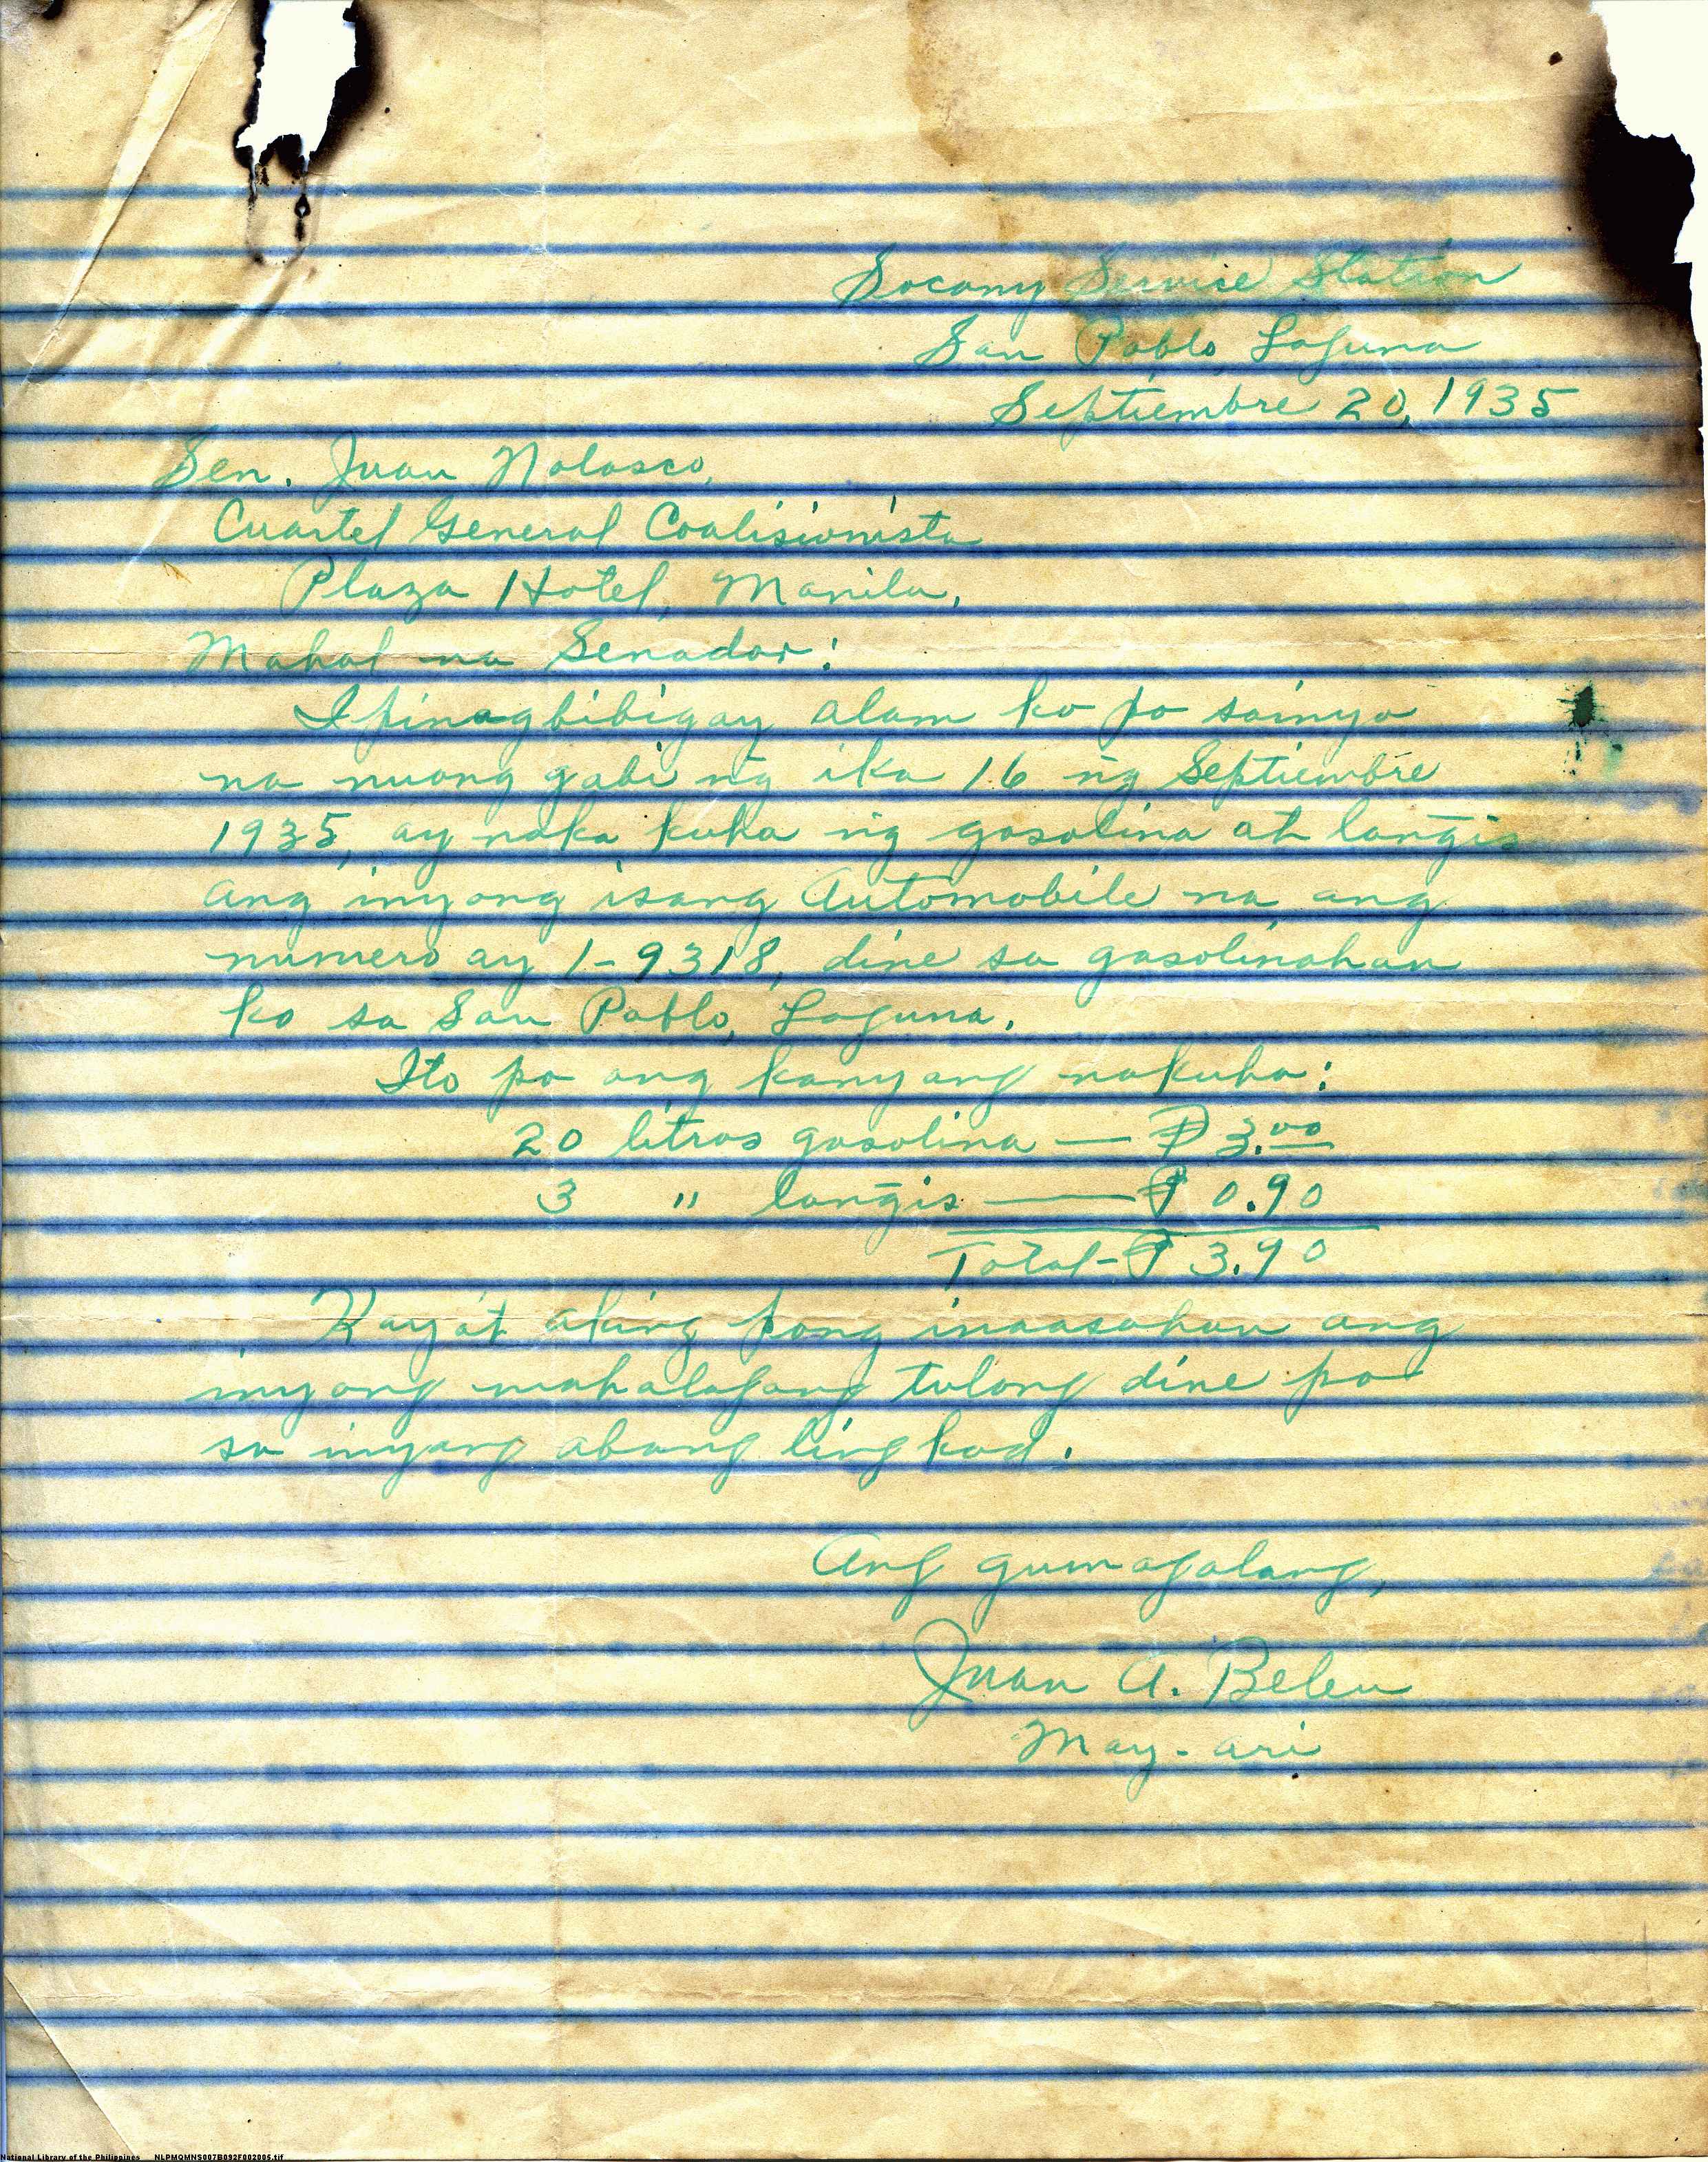 Socony Service Station
San Pablo, Laguna
Septiembre 20, 1935
Sen. Juan Nolasco,
Cuartel General Coalisionista
Plaza Hotel, Manila.
Mahal na Senador:
Ipinagbibigay alam ko po sainyo
na nuong gabi ng̃ ika 16 ng̃ Septiembre
1935, ay naka kuha ng̃ gasolina at lang̃is
ang inyong isang Automobile na ang
numero ay 1-9318, dine sa gasolinahan
ko sa San Pablo, Laguna.
Ito po ang kanyang nakuha:
20 litros gasolina — ₱ 3.00
3 " lang̃is — ₱ 0.90
Total - ₱ 3.90
Kaya't aking pong inaasahan ang
inyong mahalagang tulong dine po
sa inyong abang lingkod.
Ang gumagalang,
Juan A. Belen
May-ari
National Library of the Philippines NLPMQMNS007B092F002005.tif